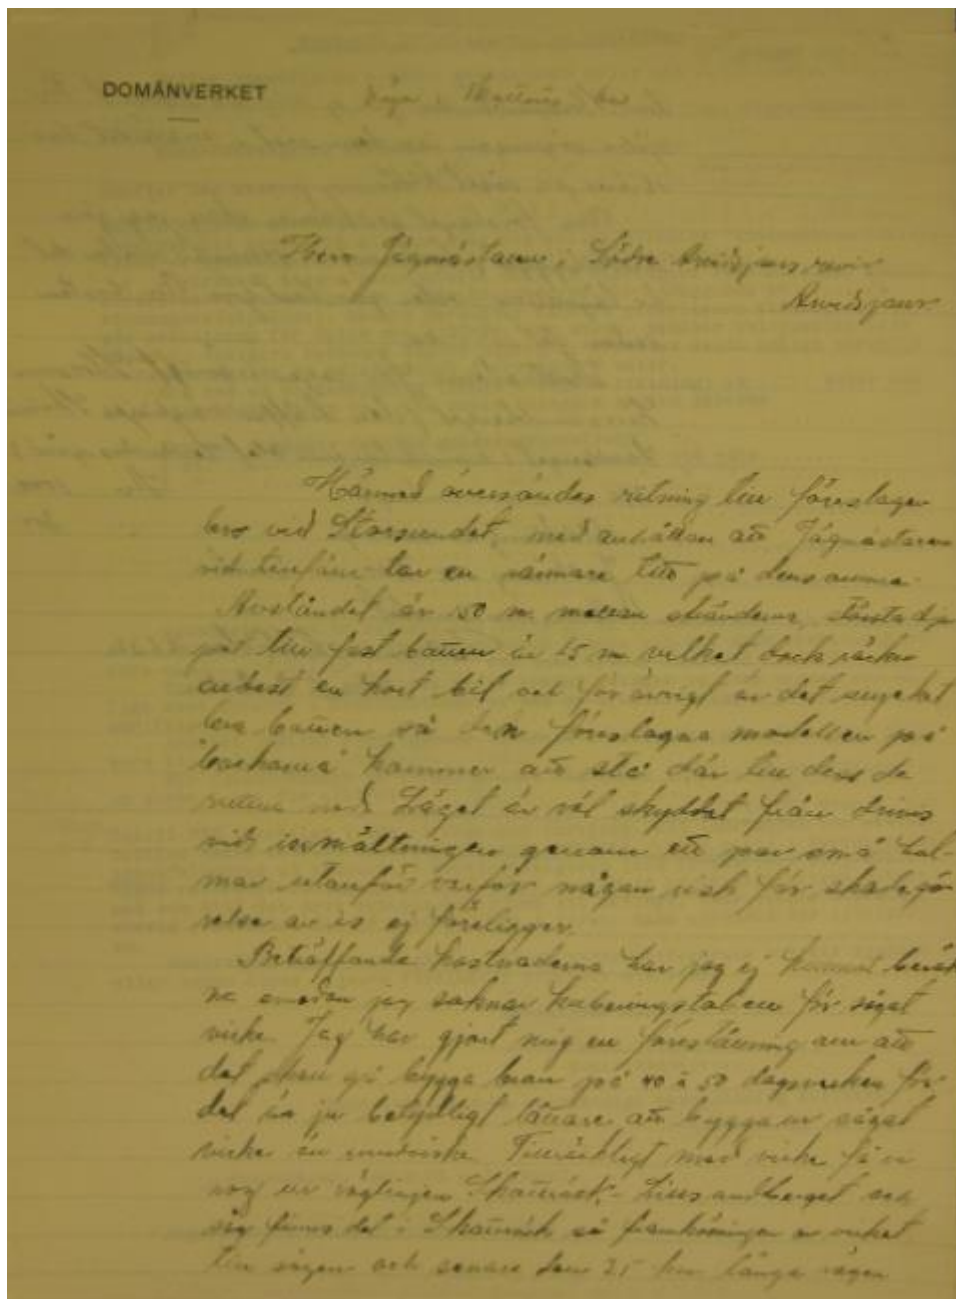 DOMÄNVERKET
Herr Jägmästaren i Södra Arvidsjaurs revir
Arvidsjaur
Härmed översändes ritning till föreslagen
bro vid Storsundet, med anhållan att Jägmästaren
vid tillfälle tar en närmare titt på densamma.
Avståndet är 50 m. mellan stränderna, största dju
pet till fast botten är 15 m vilket dock
en kort bit och för övrigt är det mycket
bra botten så den föreslagna modellen på
kommer att stå där till dess de
ned. Läget är väl skyddat från
vid issmältningen genom ett par små hol-
mar utanför varför någon risk för skadegö-
relse av is ej föreligger.
Beträffande kostnaderna har jag ej kunnat beräk
na emedan jag saknar kuberingstabell för sågat
virke. Jag har gjort mig en föreställning om att
det skall gå bygga bron på 40 à 50 dagsverken för
det är ju betydligt lättare att bygga av sågat
virke än rundvirke. Tillräckligt med virke få vi
nog ur väglinjen och
såg finns det i så framkörningen av virket
till sågen och senare den 25 km långa vägen